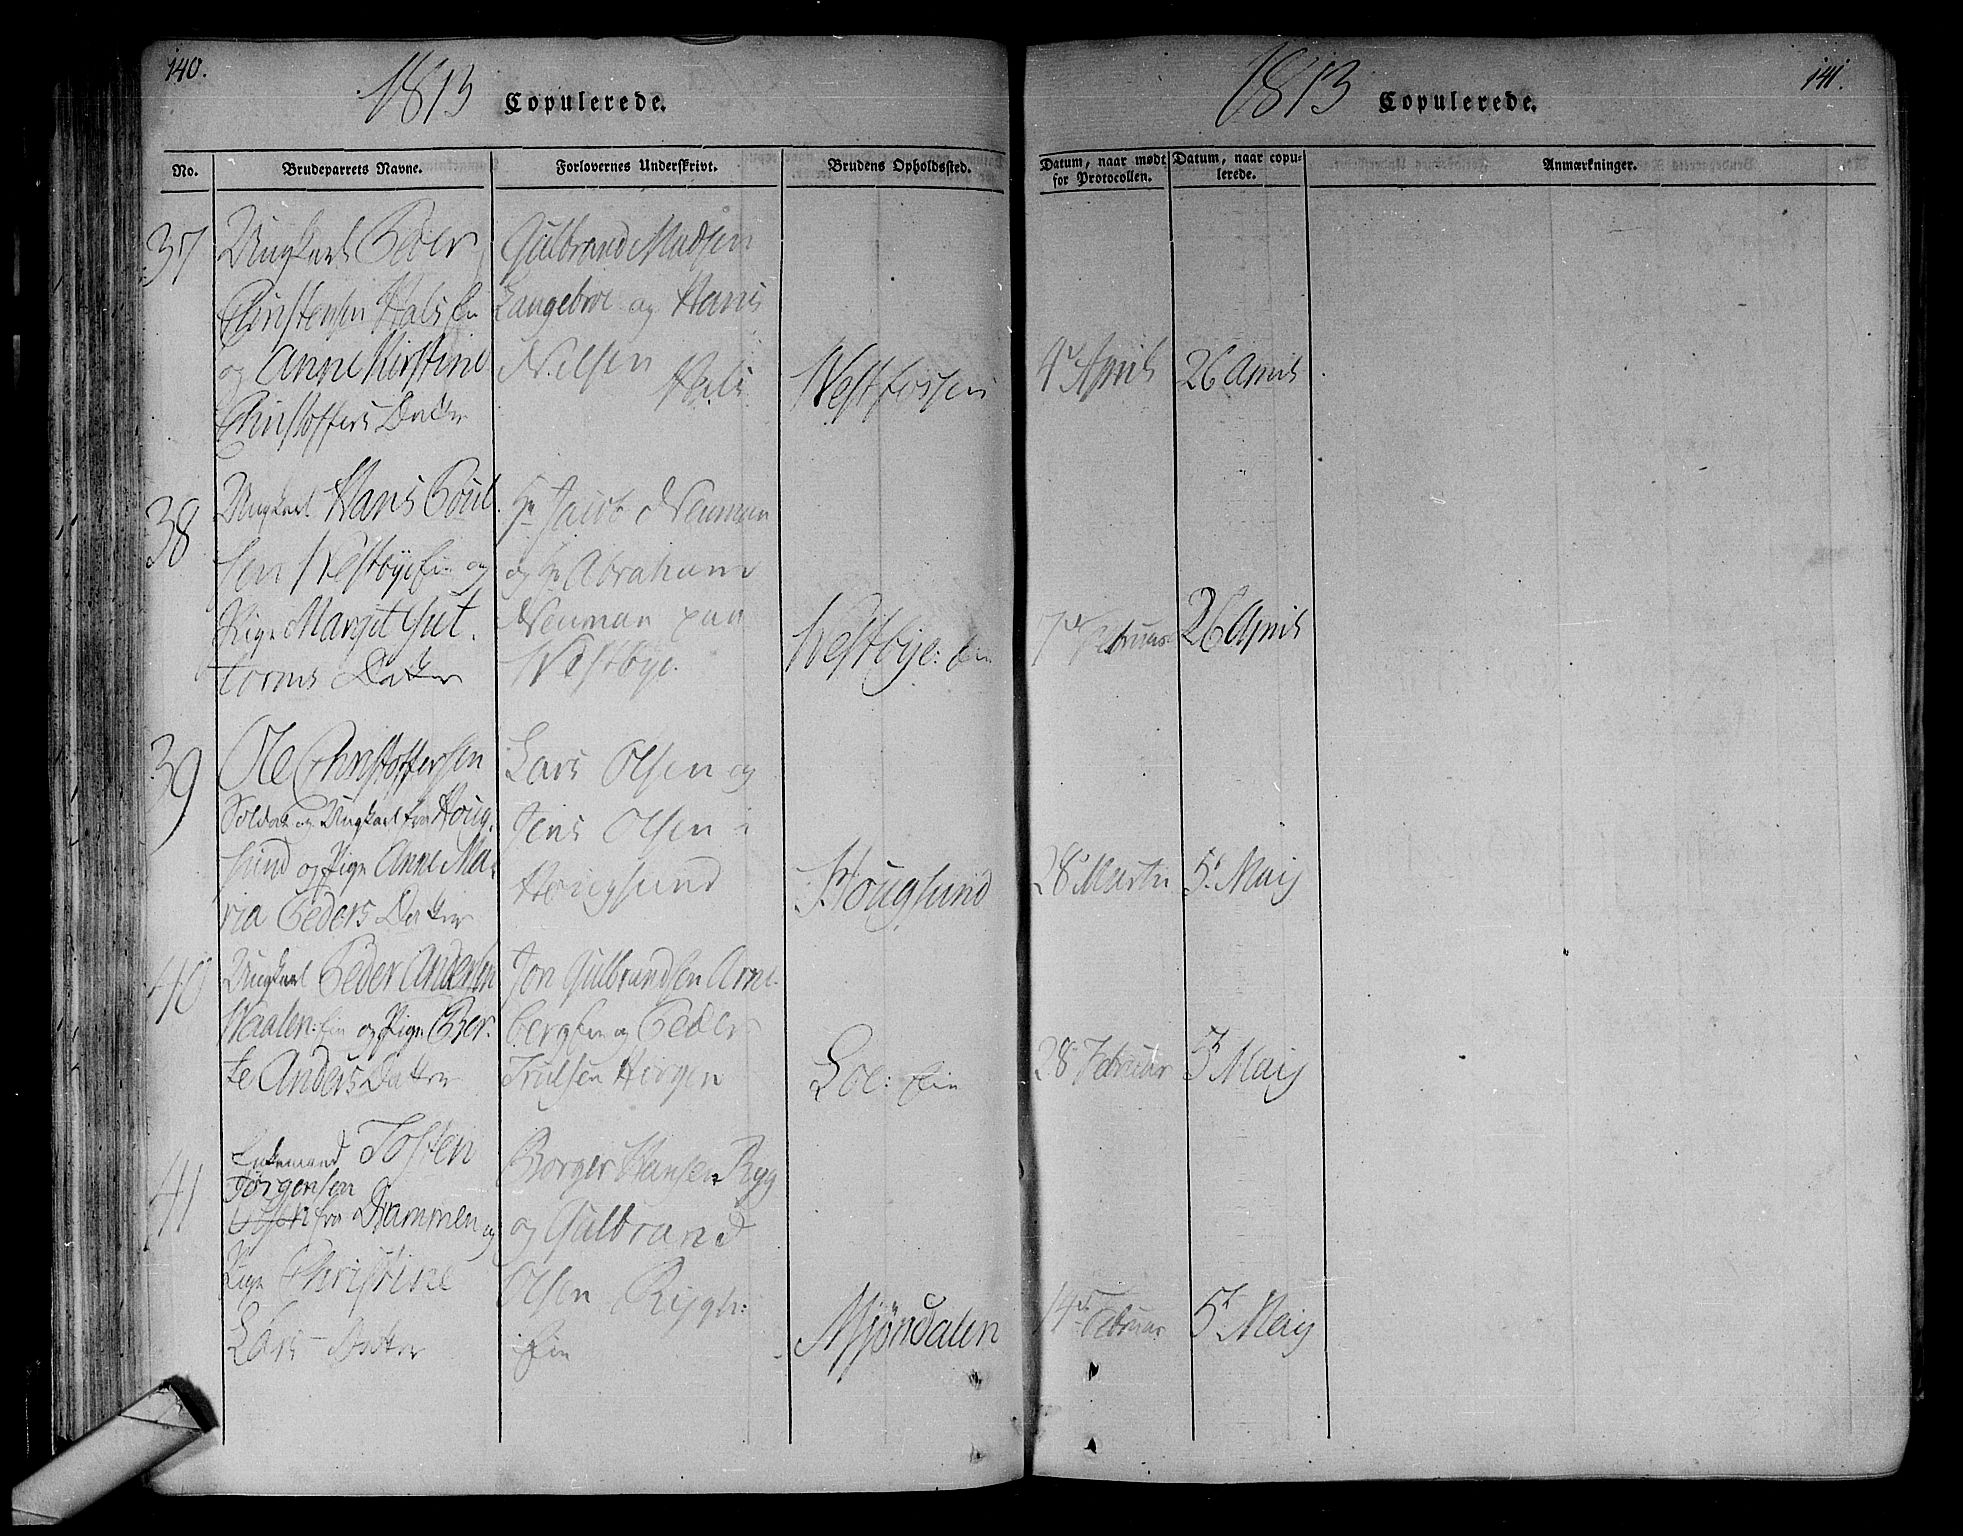 140.
1813 Copulerede.
No. Brudeparrets Navne. Forlovernes Underskrivt. Brudens Opholdssted.
37
Ungkarl Peder
Christensen Hals
og Anne Kirstine
Christoffers Datter
Gulbrand Madsen
Langebroe og Hans
Nilsen Hals
Westfossen
38
Ungkarl Hans Poul
sen Westbye og
Pige Margit Gut
torms Datter
Hr Jacob Neuman
og Hr Abraham
Neuman paa
Westbye.
Westbye:
39
Ole Christoffersen
Soldat og Ungkarl fra Houg
sund og Pige Anne Ma
ria Peders Datter
Lars Olsen og
Jens Olsen
Hougsund
Hougsund
40
Ungkarl Peder Andersen
og Pige Ber
te Anders Datter
Jon Gulbrandsen Arne
berg og Peder
Trulsen Horgen
Loe:
41
Enkemand Tosten
Jørgensen
fra Drammen og
Pige Christine
Lars Datter
Borger Hansen Ryg
og Gulbrand
Olsen
Mjøndalen
1813 Copulerede.
141.
Datum, naar mødt for Protocollen. Datum, naar copulerede. Anmærkninger.
4 April 26 April
7 Februar 26 April
28 Martii 5 Maij
28 Februar 5 Maij
14 Februar 5 Maij